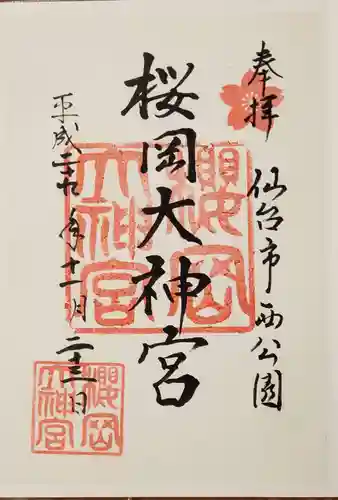 奉拝
仙台市西公園
桜岡大神宮
平成二十九年十一月二十三日
櫻岡
大神宮
櫻岡
大神宮